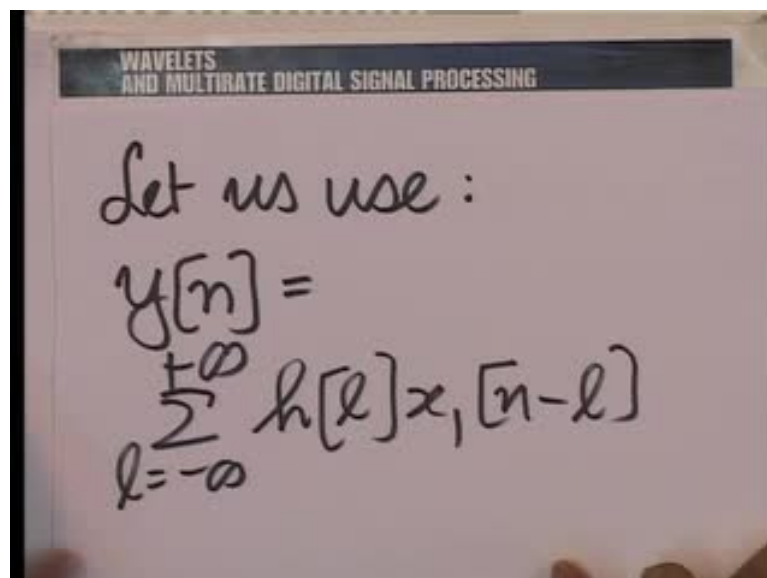 WAVELETS
AND MULTIRATE DIGITAL SIGNAL PROCESSING
Let us use :
y[n] =
+∞
∑ h[l]x₁[n-l]
l=-∞